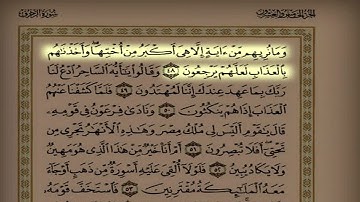 الجزء الخامس والعشرون سورة الزخرف
وَمَا نُرِيهِم مِّنْ ءَايَةٍ إِلَّا هِىَ أَكْبَرُ مِنْ أُخْتِهَا وَأَخَذْنَٰهُم
بِٱلْعَذَابِ لَعَلَّهُمْ يَرْجِعُونَ ٤٨ وَقَالُوا۟ يَٰٓأَيُّهَ ٱلسَّاحِرُ ٱدْعُ لَنَا
رَبَّكَ بِمَا عَهِدَ عِندَكَ إِنَّنَا لَمُهْتَدُونَ ٤٩ فَلَمَّا كَشَفْنَا عَنْهُمُ
ٱلْعَذَابَ إِذَا هُمْ يَنكُثُونَ ٥٠ وَنَادَىٰ فِرْعَوْنُ فِى قَوْمِهِۦ
قَالَ يَٰقَوْمِ أَلَيْسَ لِى مُلْكُ مِصْرَ وَهَٰذِهِ ٱلْأَنْهَٰرُ تَجْرِى مِن
تَحْتِىٓ أَفَلَا تُبْصِرُونَ ٥١ أَمْ أَنَا۠ خَيْرٌ مِّنْ هَٰذَا ٱلَّذِى هُوَ مَهِينٌ
وَلَا يَكَادُ يُبِينُ ٥٢ فَلَوْلَآ أُلْقِىَ عَلَيْهِ أَسْوِرَةٌ مِّن ذَهَبٍ أَوْ جَآءَ
مَعَهُ ٱلْمَلَٰٓئِكَةُ مُقْتَرِنِينَ ٥٣ فَٱسْتَخَفَّ قَوْمَهُۥ